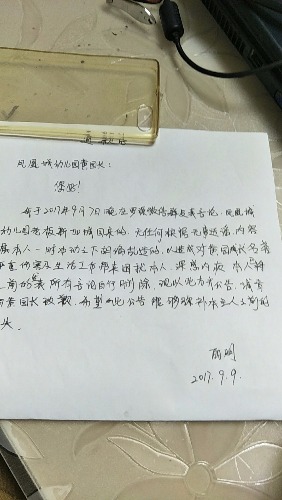 道歉信
凤凰城幼儿园黄园长:
您好!
本于2017年9月7日晚在罗顶微信群发表言论,凤凰城
幼儿园老板新加坡国来的,无任何根据无事造谣内容
属本人一时冲动之下胡编乱造的,以造成对黄园长名誉
严重伤害及生活工作带来困扰本人,深感内疚,本人将
之前的发所有言论自行删除,现以此方式公告,诚意
向黄园长致歉,希望此公告能够弥补本人之前的
失。
2017.9.9.